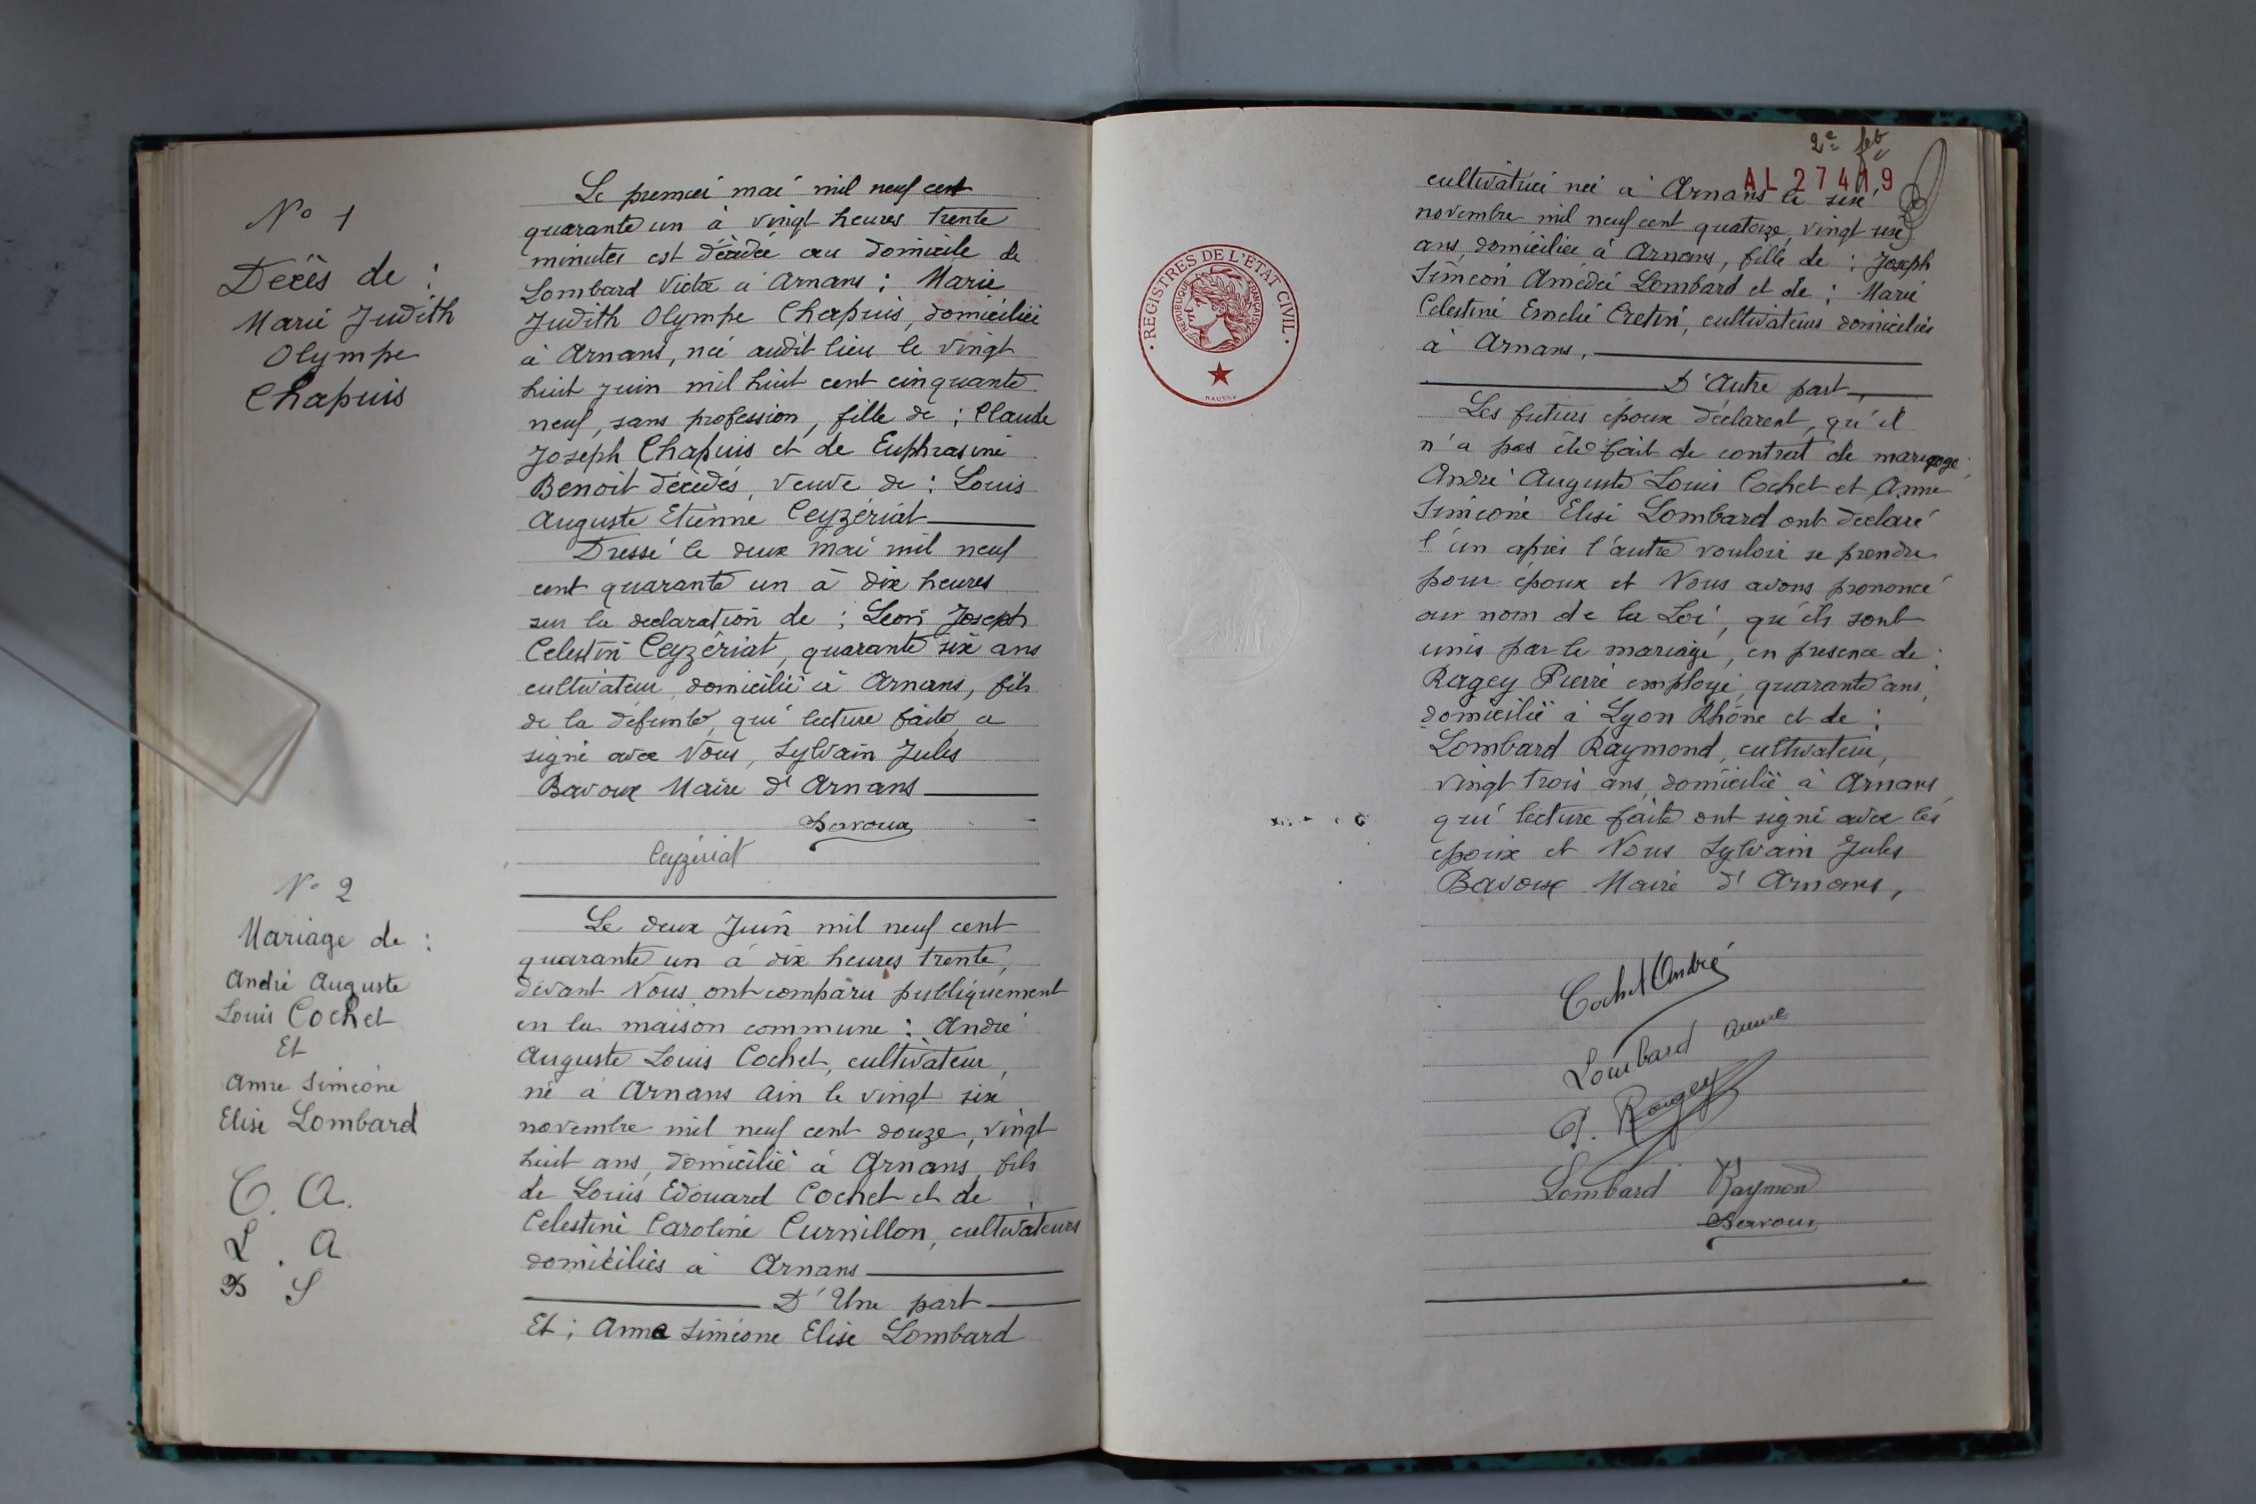 N° 1
Décès de :
Marie Judith
Olympe
Chapuis
Le premier mai mil neuf cent
quarante un à vingt heures trente
minutes est décédée au domicile de
Lombard Victor à Arnans : Marie
Judith Olympe Chapuis, domiciliée
à Arnans, née audit lieu le vingt
huit juin mil huit cent cinquante
neuf, sans profession, fille de : Claude
Joseph Chapuis et de Euphrasine
Benoit décédés, veuve de : Louis
Auguste Etienne Ceyzériat
Dressé le deux mai mil neuf
cent quarante un à dix heures
sur la declaration de : Léon Joseph
Celestin Ceyzériat, quarante six ans
cultivateur, domicilié à Arnans, fils
de la défunte, qui lecture faite, a
signé avec Nous, Sylvain Jules
Bavoux Maire d'Arnans
Bavoux
Ceyzériat
N° 2
Mariage de :
André Auguste
Louis Cochet
Et
Anne Siméone
Elise Lombard
C. A.
L. A
B S
Le deux Juin mil neuf cent
quarante un à dix heures trente,
devant Nous ont comparu publiquement
en la maison commune : André
Auguste Louis Cochet, cultivateur,
né à Arnans Ain le vingt six
novembre mil neuf cent douze, vingt
huit ans, domicilié à Arnans, fils
de Louis Edouard Cochet et de
Celestine Caroline Curnillon, cultivateurs
domiciliés à Arnans
D'Une part
Et : Anne Siméone Elise Lombard
2e
AL 27419
cultivatrice née à Arnans le six
novembre mil neuf cent quatorze, vingt six
ans, domiciliée à Arnans, fille de : Joseph
Siméon Amédée Lombard et de : Marie
Celestine Emelie Cretin, cultivateurs domiciliés
à Arnans,
D'Autre part,
Les futurs époux déclarent, qu'il
n'a pas été fait de contrat de mariage
André Auguste Louis Cochet et Anne
Siméone Elise Lombard ont declaré
l'un après l'autre vouloir se prendre
pour époux et Nous avons prononcé
au nom de la Loi, qu'ils sont
unis par le mariage, en presence de :
Ragey Pierre employé, quarante ans,
domicilié à Lyon Rhône et de :
Lombard Raymond, cultivateur,
vingt trois ans, domicilié à Arnans
qui lecture faite ont signé avec les
epoux et Nous Sylvain Jules
Bavoux Maire d'Arnans,
Cochet André
Lombard Anne
P. Ragey
Lombard Raymond
Bavoux
• REGISTRES DE L'ETAT CIVIL •
REPUBLIQUE FRANÇAISE